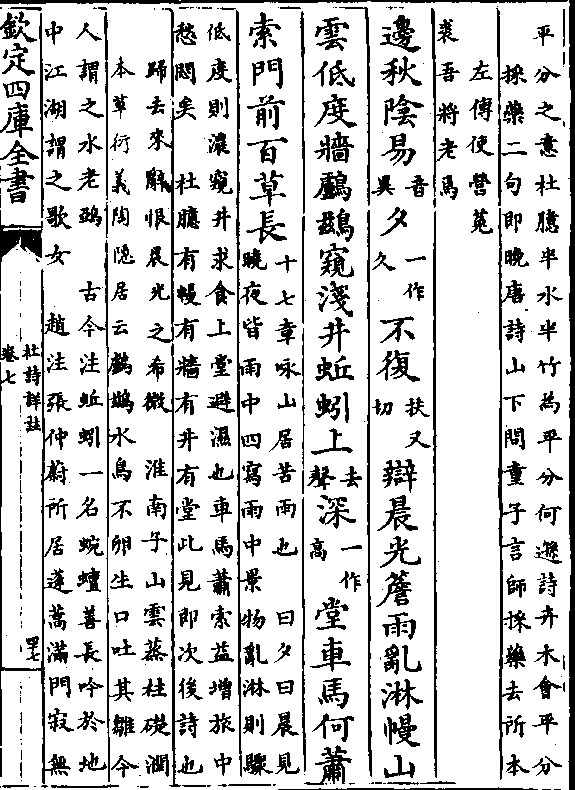 平分之意杜臆半水半竹為平分何遜詩卉木㑹平分
採藥二句即晚唐詩山下問童子言師採藥去所本
左傳使營菟
裘吾將老焉
邊秋隂易音
異夕一作
久不復扶又
切辯晨光簷雨亂淋幔山
雲低度牆鸕鷀窺淺井蚯蚓上去
聲深一作
高堂車馬何蕭
索門前百草長十七章咏山居苦雨也 曰夕曰晨見
曉夜皆雨中四寫雨中景物亂淋則驟
低度則濃窺井求食上堂避濕也車馬蕭索益增旅中
愁悶矣 杜臆有幔有牆有井有堂此見即次後詩也
歸去來辭恨晨光之希微 淮南子山雲蒸柱礎潤
本草衍義陶隠居云鸕鷀水鳥不卵生口吐其雛今
人謂之水老鵶 古今注蚯蚓一名蜿蟺善長吟於地
中江湖謂之歌女 趙注張仲蔚所居蓬蒿滿門寂無
欽定四庫全書
杜詩詳註
卷七
四七